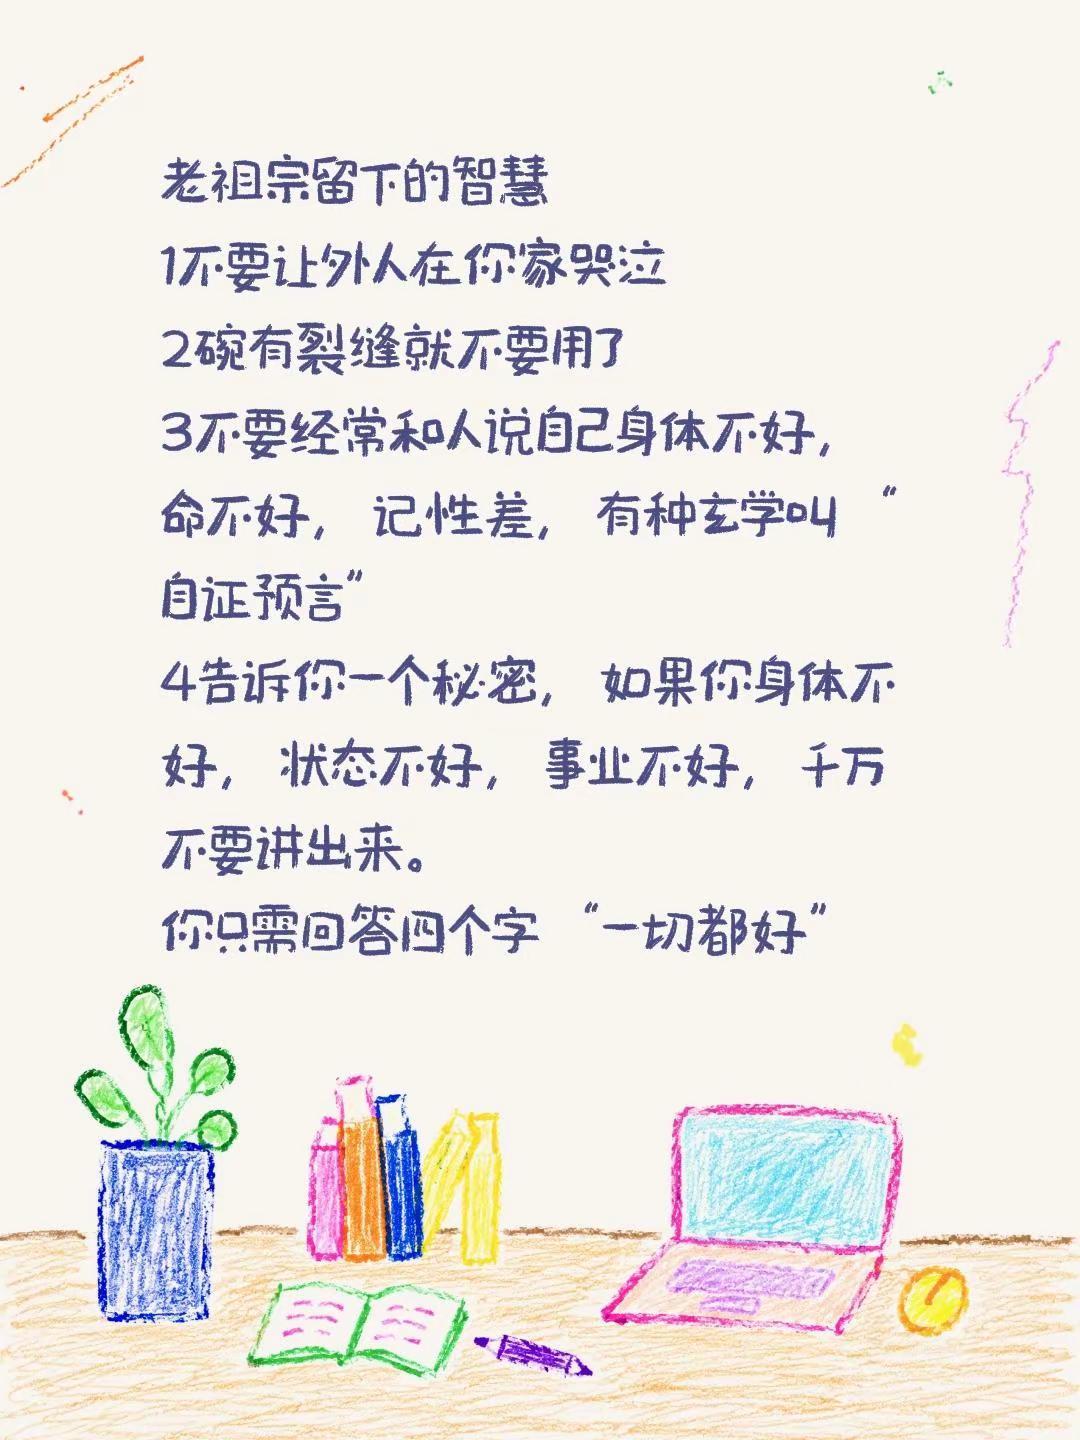 老祖宗留下的智慧
1不要让外人在你家哭泣
2碗有裂缝就不要用了
3不要经常和人说自己身体不好,
命不好, 记性差, 有种玄学叫 “
自证预言”
4告诉你一个秘密, 如果你身体不
好, 状态不好, 事业不好, 千万
不要讲出来。
你只需回答四个字 “一切都好”